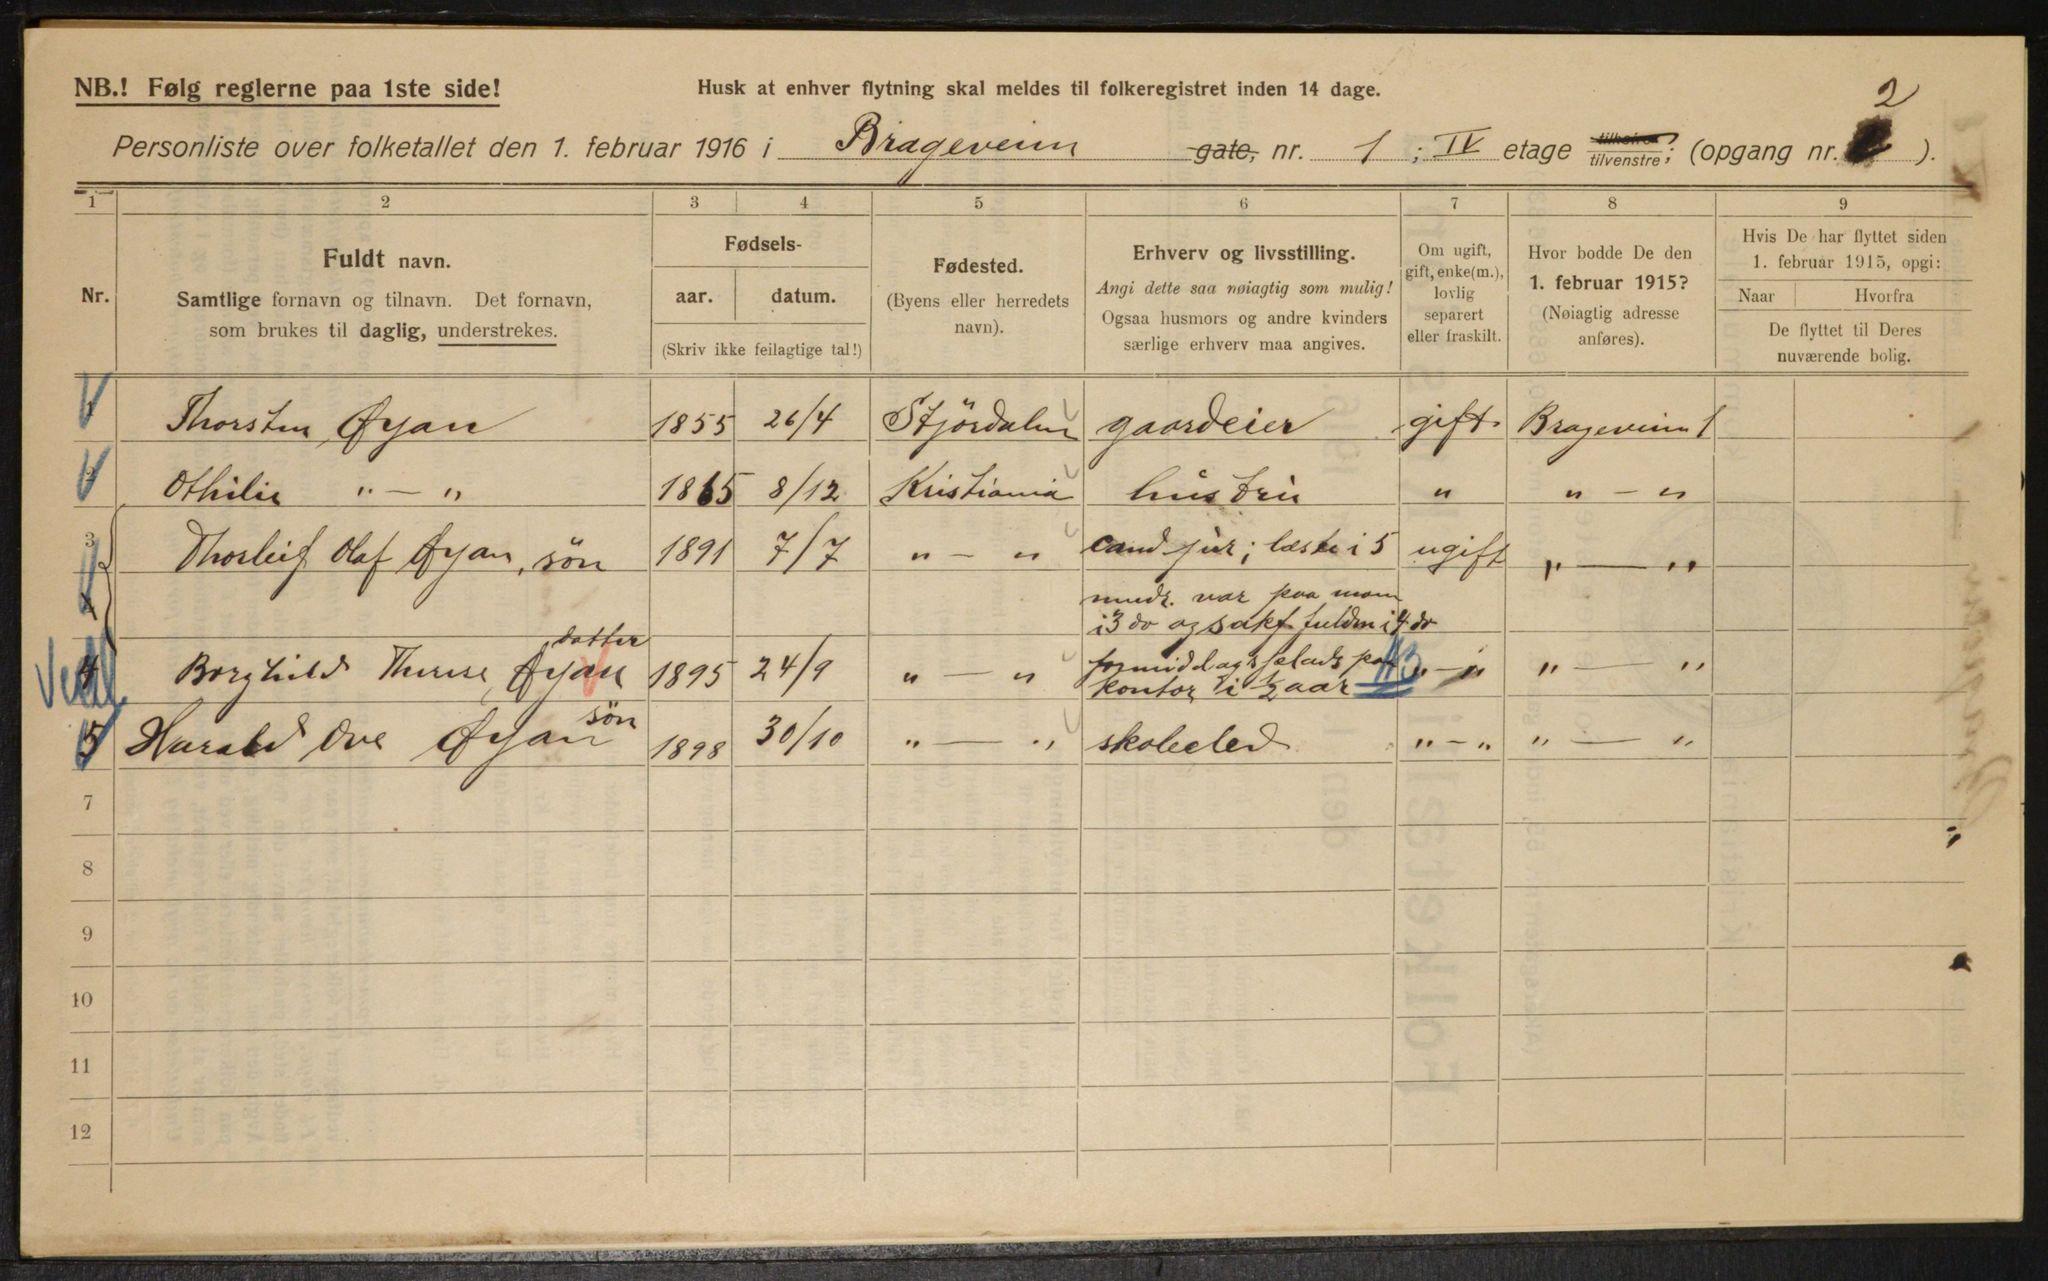 NB.! Følg reglerne paa 1ste side!
Husk at enhver flytning skal meldes til folkeregistret inden 14 dage.
2
Personliste over folketallet den 1. februar 1916 i Brageveien gate, nr. 1 ; IV etage tilvenstre; (opgang nr. ).
1 2 3 4 5 6 7 8 9
Nr.
Fuldt navn.
Samtlige fornavn og tilnavn. Det fornavn,
som brukes til daglig, understrekes.
Fødsels-
aar. datum.
(Skriv ikke feilagtige tal!)
Fødested.
(Byens eller herredets
navn).
Erhverv og livsstilling.
Angi dette saa nøiagtig som mulig!
Ogsaa husmors og andre kvinders
særlige erhverv maa angives.
Om ugift,
gift, enke(m.),
lovlig
separert
eller fraskilt.
Hvor bodde De den
1. februar 1915?
(Nøiagtig adresse
anføres).
Hvis De har flyttet siden
1. februar 1915, opgi:
Naar Hvorfra
De flyttet til Deres
nuværende bolig.
1 Thorsten Øyan 1855 26/4 Stjördalen gaardeier gift Brageveien 1
2 Othilie " — " 1865 8/12 Kristiania hustru " " — "
3 Thorleif Olaf Øyan, sön 1891 7/7 " — " cand jur; læste i 5 ugift " — "
mndr. var paa
i 3 do og i 4 do
datter
4 Borghild Therese Øyan 1895 24/9 " — " formiddagsplads paa " — " " — "
kontor i 1/2 aar
sön
5 Harald Ove Øyan 1898 30/10 " — " skoleelev " — " " — "
7
8
9
10
11
12